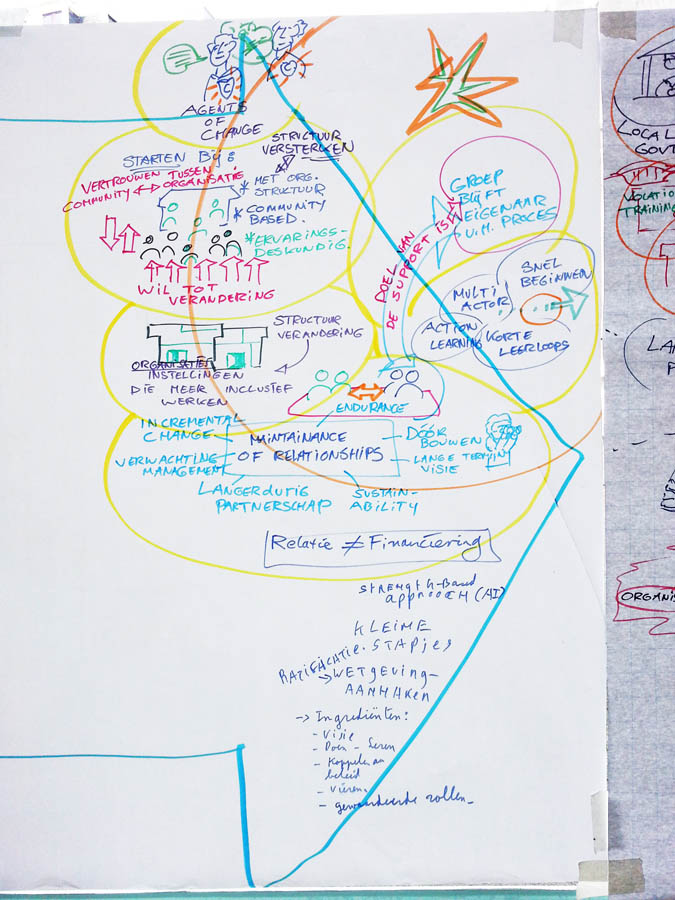 AGENTS
OF
CHANGE
STRUCTUUR
VERSTERKEN
STARTEN Bij:
VERTROUWEN TUSSEN
COMMUNITY ↔ ORGANISATIE
* MET ORG.
STRUCTUUR
* COMMUNITY
BASED.
* ERVARINGS-
DESKUNDIG.
WIL TOT
VERANDERING
GROEP
BLIJFT
EIGENAAR
V.H. PROCES
DOEL VAN
DE SUPPORT IS
SNEL
BEGINNEN
MULTI
ACTOR
ACTION
LEARNING
KORTE
LEERLOOPS
STRUCTUUR
VERANDERING
ORGANISATIES
INSTELLINGEN
DIE MEER INCLUSIEF
WERKEN
ENDURANCE
INCREMENTAL
CHANGE
VERWACHTING
MANAGEMENT
MAINTAINANCE
OF RELATIONSHIPS
DÓÓR
BOUWEN
LANGE TERMIJN
VISIE
LANGERDURIG
PARTNERSCHAP
SUSTAIN-
ABILITY
Relatie ≠ Financiering
STRENGTH-BASED
APPROOCH (AI)
KLEINE
STAPJES
RATIFICATIE
→ WETGEVING-
AANMAKEN
→ Ingrediënten:
- Visie
- Doen - leren
- Koppelen aan
beleid
- Vieren
- gewaardeerde rollen
LOCAL
GOVT
TRAINING
ORGANIS